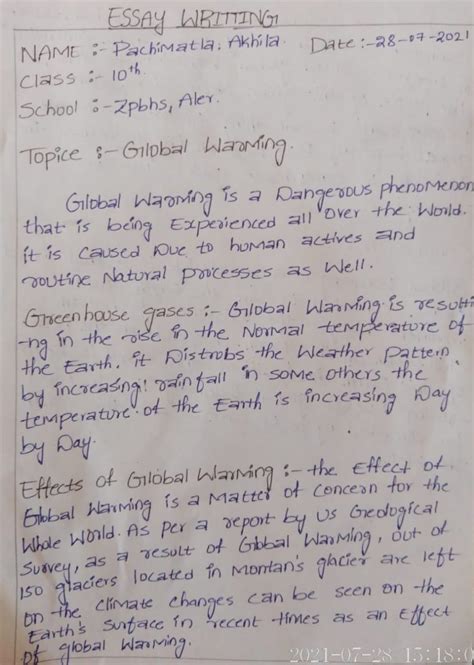 ESSAY WRITTING
NAME :- Pachimatla. Akhila. Date:-28-07-2021
Class :- 10th.
School :- Zpbhs, Aler.
Topice :- Global Warming.
Global Warming is a Dangerous phenomenon
that is being Experienced all over the World.
it is caused Due to human actives and
routine Natural processes as Well.
Greenhouse gases :- Global Warming is resulti
-ng in the rise in the Normal temperature of
the Earth. it Distrobs the Weather Pattern
by increasing! rainfall in some others the
temperature of the Earth is increasing Day
by Day.
Effects of Global Warming :- the Effect of
Global Warming is a Matter of concern for the
Whole World. As per a report by US Geological
Survey, as a result of Global Warming, out of
150 glaciers located in Montan's glacier are left
on the climate changes can be seen on the
Earth's surface in recent times as an Effect
of global Warming.
2021-07-28 15:18:0